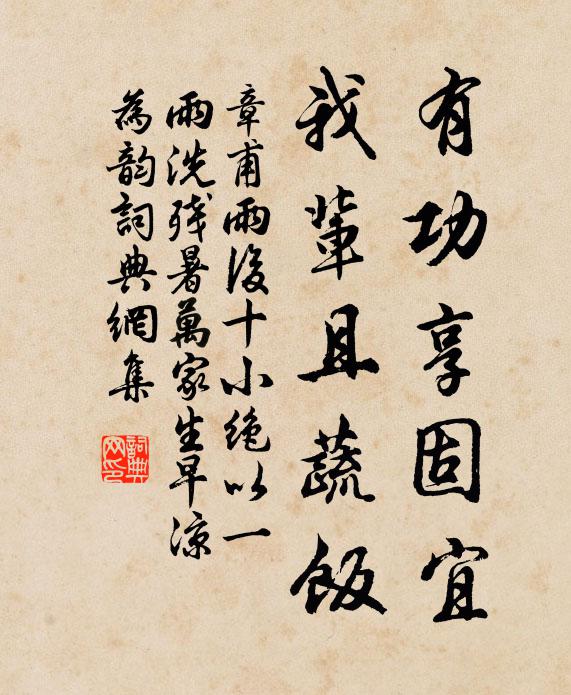 有功享固宜
我輩且蔬飯
章甫雨後十小绝以一
雨洗残暑萬家生早凉
為韵詞典網集
詞典网印